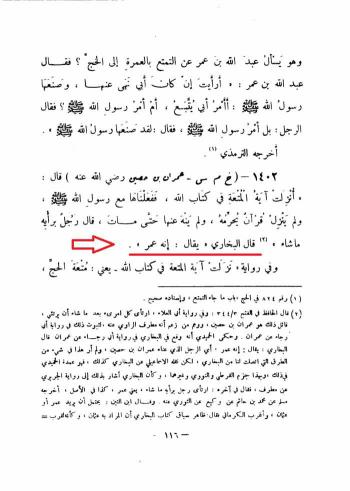 وهو يسأل عبد الله بن عمر عن التمتع بالعمرة إلى الحج ؟ فقال
عبد الله بن عمر : « أرأيت إن كان أبي نهى عنها ، وصنعها
رسول الله ﷺ : أأمر أبي يُتَّبع ، أم أمر رسول الله ﷺ ؟ فقال
الرجل : بل أمر رسول الله ﷺ ، فقال : لقد صنعها رسول الله ﷺ » .
أخرجه الترمذي (١) .
١٤٠٢ – ( خ م س – عمران بن حصين رضي الله عنه ) قال :
« أُنزلت آية المتعة في كتاب الله ، ففعلناها مع رسول الله ﷺ ،
ولم ينزل قرآن يحرمه ، ولم ينه عنها حتى مات ، قال رجل برأيه
ما شاء » (٢) قال البخاري « يقال : إنه عمر » .
وفي رواية : نزلت آية المتعة في كتاب الله – يعني : متعة الحج ،
(١) رقم ٨٢٤ في الحج ، باب ما جاء التمتع ، وإسناده صحيح .
(٢) قال الحافظ في الفتح ٣٤٤/٣ : وفي رواية أبي العلاء ، ارتأى كل امرئ ، بعد ما شاء أن يرتئي ،
قائل ذلك هو عمران بن حصين ، ووهم من زعم أنه مطرف الراوي عنه ، لثبوت ذلك في رواية أبي
رجاء عن عمران . وحكى الحميدي أنه وقع في البخاري في رواية أبي رجاء عن عمران قال
البخاري : يقال : إنه عمر ، أي الرجل الذي عناه عمران بن حصين ، ولم أر هذا في شيء من
الطرق التي اتصلت لنا من البخاري ، لكن نقله الإسماعيلي عن البخاري كذلك ، فهو عمدة الحميدي
في ذلك ، وبهذا جزم القرطبي والنووي وغيرهما ، وكأن البخاري أشار بذلك إلى رواية الجريري
عن مطرف ، فقال في آخره : ارتأى رجل برأيه ما شاء ، يعني عمر ، كذا في الأصل ، أخرجه
مسلم عن محمد بن حاتم عن وكيع عن الثوري عنه . وقال ابن التين : يحتمل أن يريد عمر أو
عثمان ، وأغرب الكرماني فقال : ظاهر سياق كتاب البخاري أن المراد به عثمان ، وكأنه لقرب
– ١١٦ –